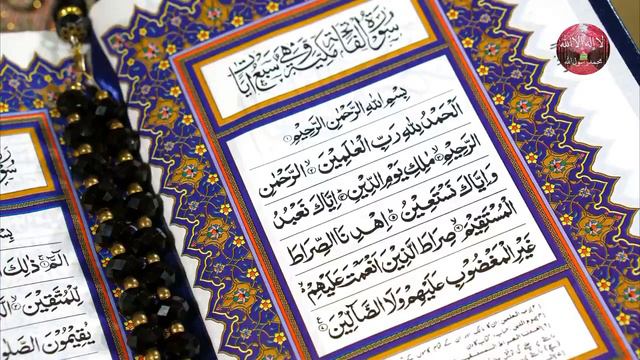 سورة الفاتحة مكية وهي سبع آيات
بِسْمِ اللهِ الرَّحْمٰنِ الرَّحِيْمِ
اَلْحَمْدُ لِلّٰهِ رَبِّ الْعٰلَمِيْنَ الرَّحْمٰنِ
الرَّحِيْمِ مٰلِكِ يَوْمِ الدِّيْنِ اِيَّاكَ نَعْبُدُ
وَاِيَّاكَ نَسْتَعِيْنُ اِهْدِنَا الصِّرَاطَ
الْمُسْتَقِيْمَ صِرَاطَ الَّذِيْنَ اَنْعَمْتَ عَلَيْهِمْ
غَيْرِ الْمَغْضُوْبِ عَلَيْهِمْ وَلَا الضَّآلِّيْنَ
سورة
بِسْمِ
الٓمّٓ ذٰلِكَ
لِلْمُتَّقِيْنَ
يُقِيْمُوْنَ
لا اله الا الله
محمد رسول الله